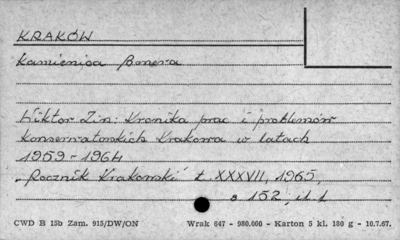 KRAKÓW
Kamienica Bonera
Wiktor Zin: Kronika prac i problemów
konserwatorskich Krakowa w latach
1959-1964
"Rocznik Krakowski" t. XXXVII, 1965,
s 152, il. 1
CWD B 15b Zam. 915/DW/ON Wrak 647 - 980.000 - Karton 5 kl. 180 g - 10.7.67.